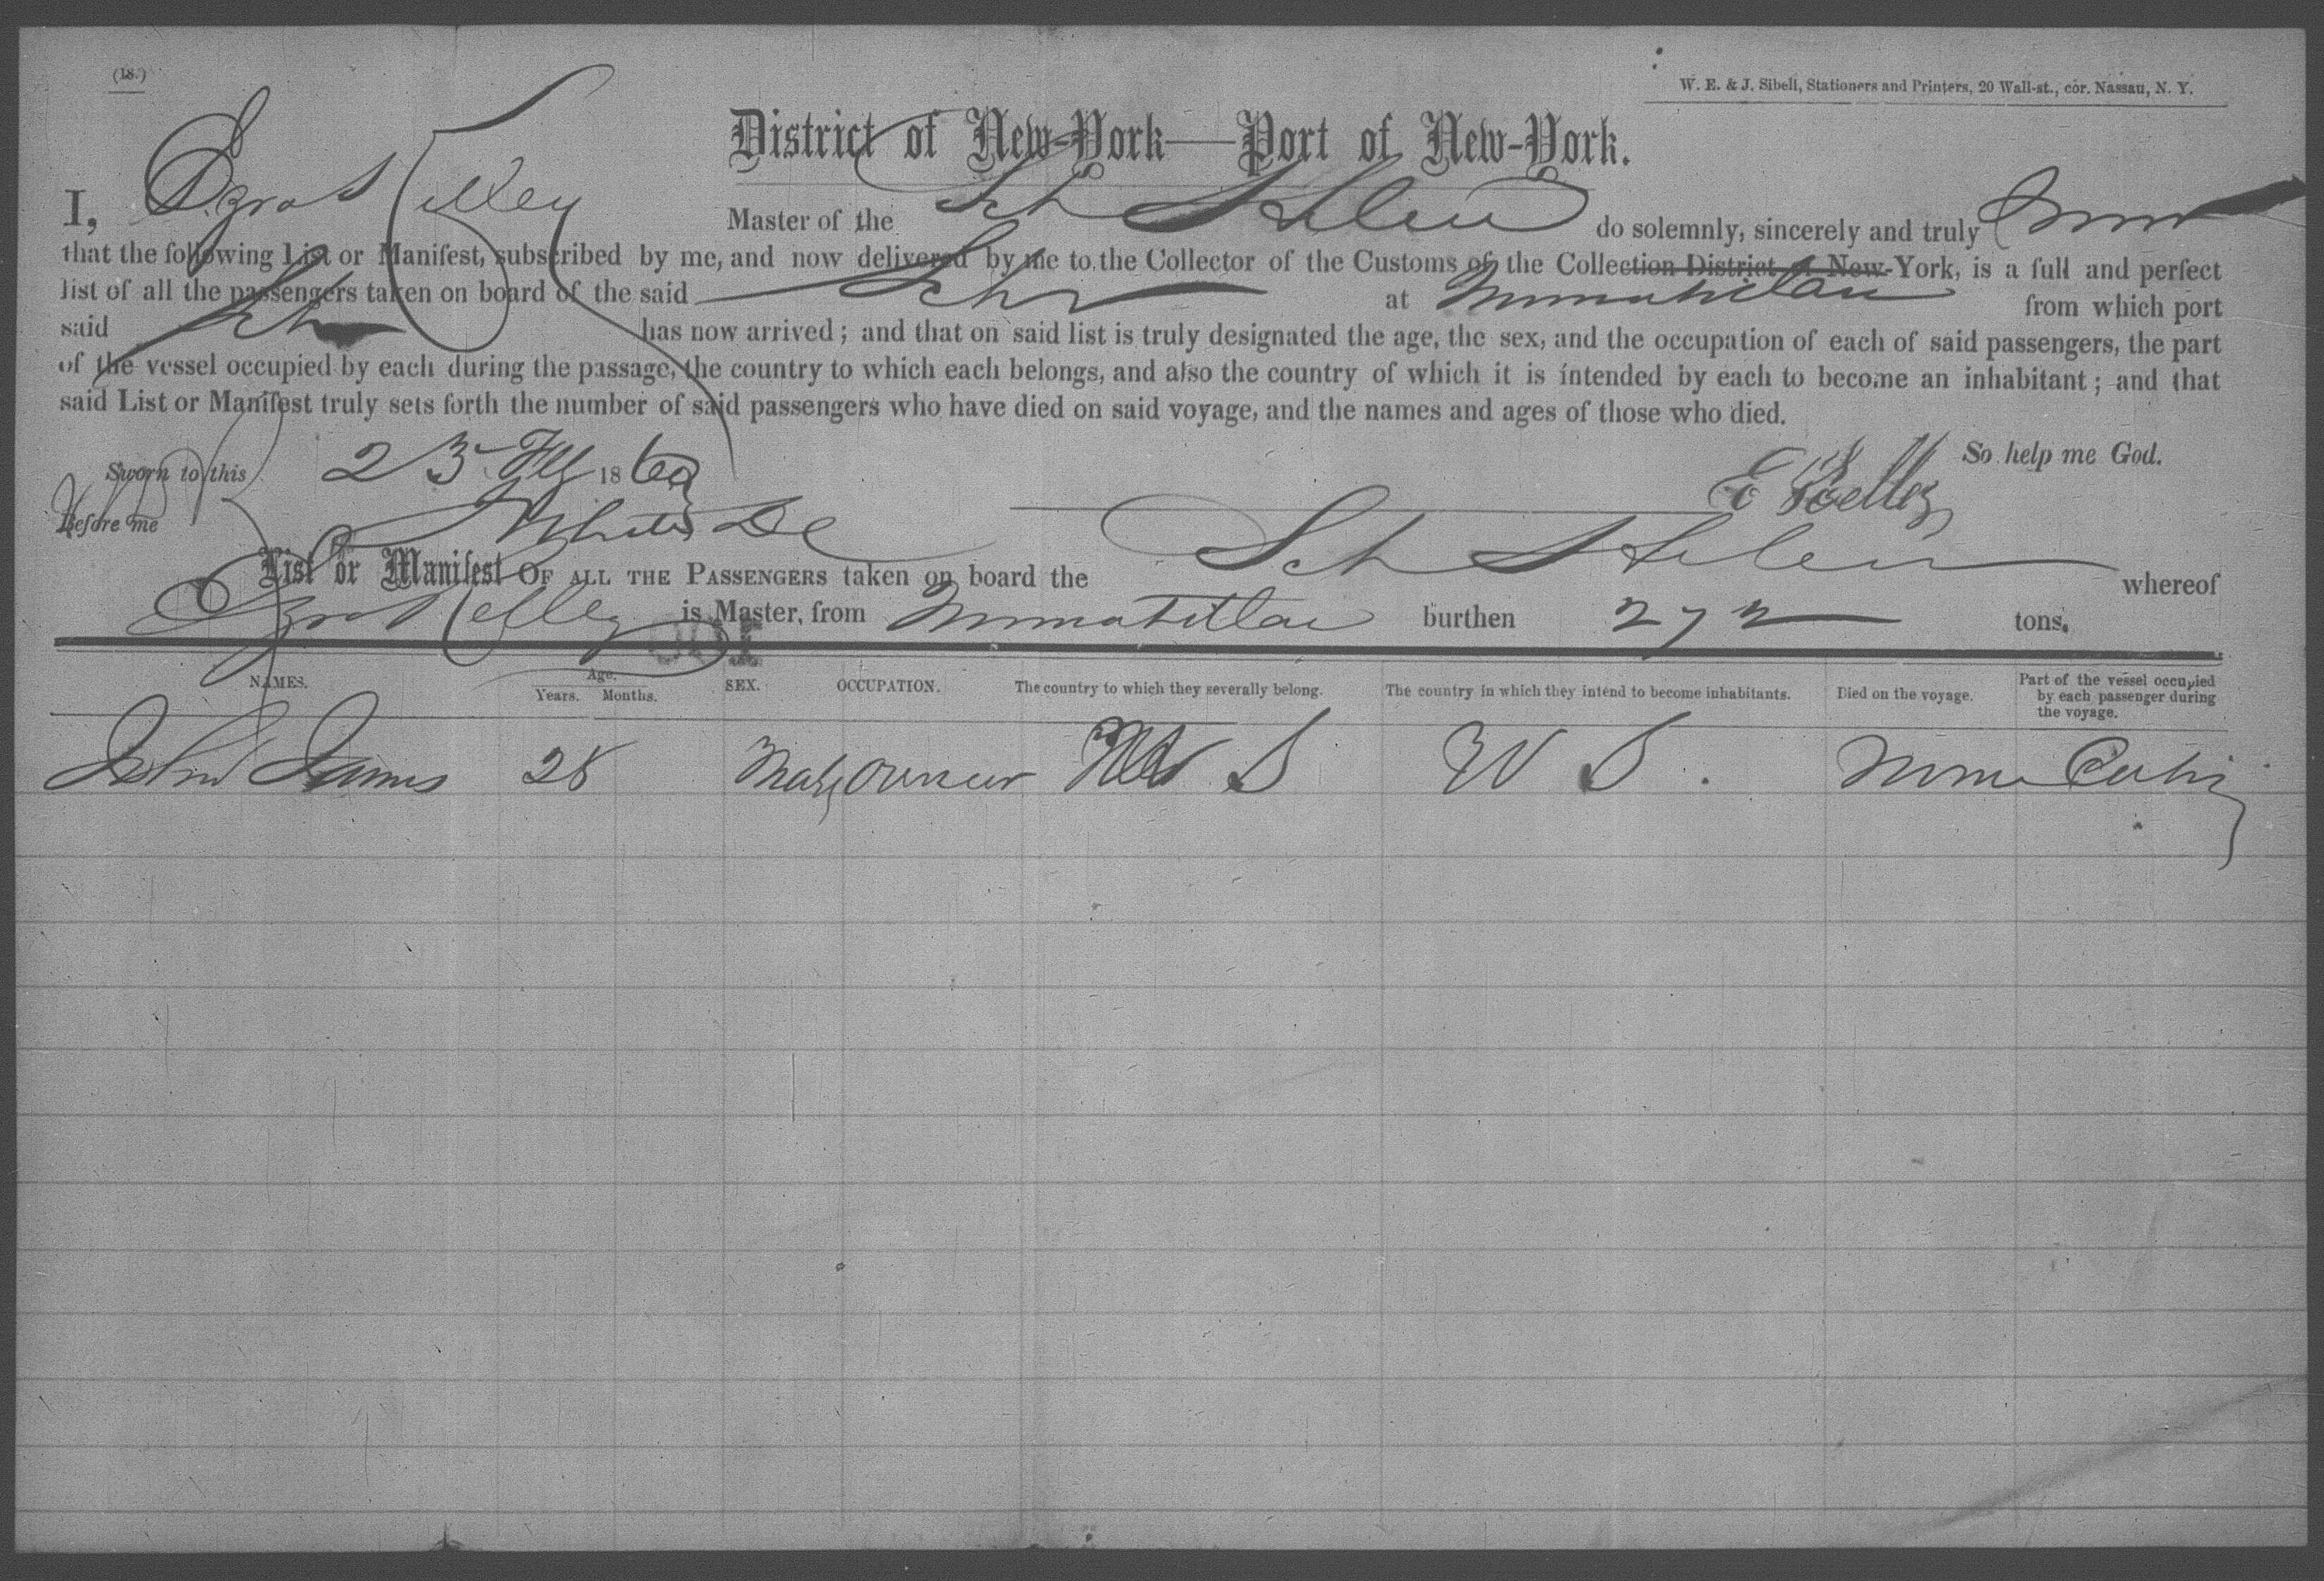 (18.)
W. E. & J. Sibell, Stationers and Printers, 20 Wall-st., cor. Nassau, N. Y.
District of New-York—Port of New-York.
I, Ezra Kelley Master of the Sch Helen do solemnly, sincerely and truly
that the following List or Manifest, subscribed by me, and now delivered by me to the Collector of the Customs of the Collection District of New-York, is a full and perfect
list of all the passengers taken on board of the said Schr at Minatitlan from which port
said Sch has now arrived; and that on said list is truly designated the age, the sex, and the occupation of each of said passengers, the part
of the vessel occupied by each during the passage, the country to which each belongs, and also the country of which it is intended by each to become an inhabitant; and that
said List or Manifest truly sets forth the number of said passengers who have died on said voyage, and the names and ages of those who died.
So help me God.
Sworn to this 23 186
E Kelley
Before me
List or Manifest OF ALL THE PASSENGERS taken on board the Sch Helen whereof
Ezra Kelley is Master, from Minatitlan burthen 272 tons.
NAMES. Age. Years. Months. SEX. OCCUPATION. The country to which they severally belong. The country in which they intend to become inhabitants. Died on the voyage. Part of the vessel occupied by each passenger during the voyage.
John James 28 Male U S U S. None Cabin